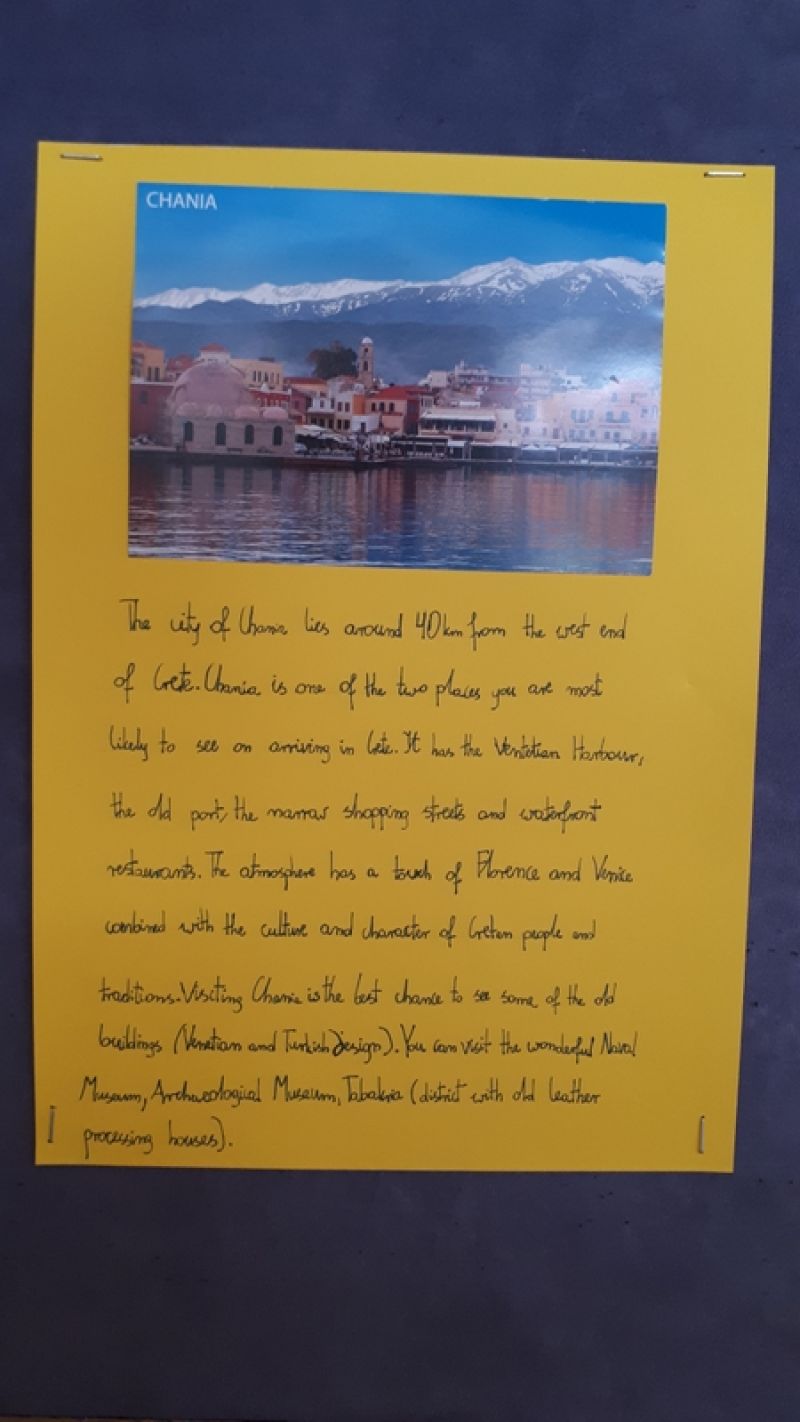 CHANIA
The city of Chania lies around 40 km from the west end
of Crete. Chania is one of the two places you are most
likely to see on arriving in Crete. It has the Venetian Harbour,
the old port, the narrow shopping streets and waterfront
restaurants. The atmosphere has a touch of Florence and Venice
combined with the culture and character of Cretan people and
traditions. Visiting Chania is the best chance to see some of the old
buildings (Venetian and Turkish Design). You can visit the wonderful Naval
Museum, Archaeological Museum, Tabakria (district with old leather
processing houses).